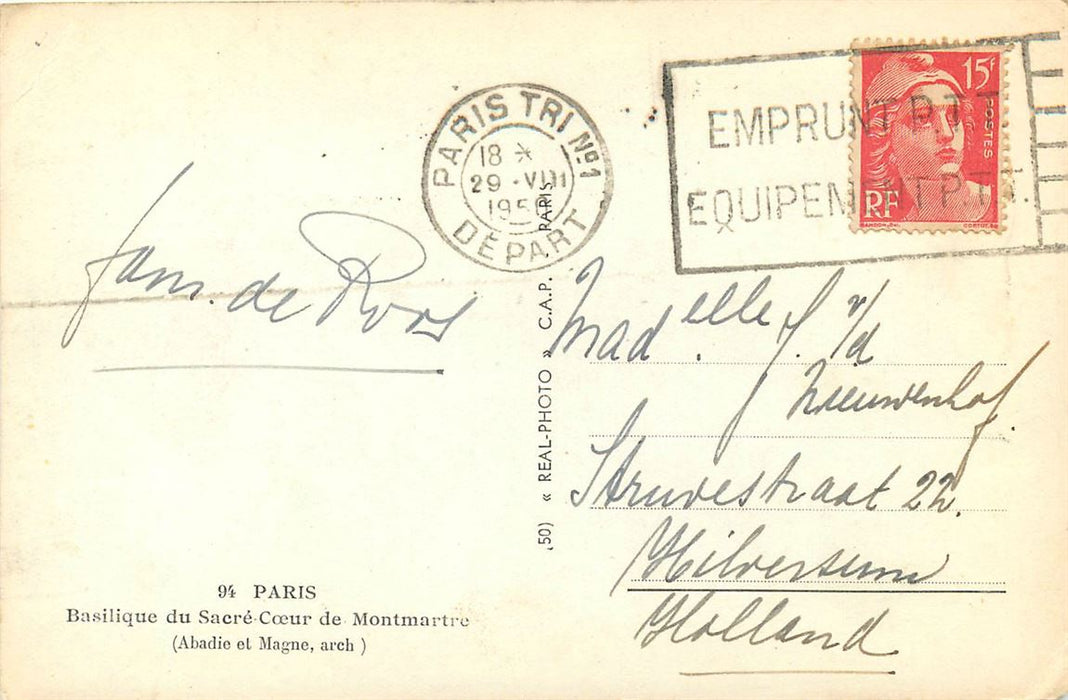 PARIS TRI Nº1
18 *
29 - VIII
1950
DÉPART
EMPRUNT P.T.T.
EQUIPEMENT P.T.T.
15F
POSTES
RF
GANDON, DEL.
CORTOT, SC
Fam. de Roos
Mad.elle J. v/d
Nieuwenhof.
Struvestraat 22.
Hilversum
Holland
(50) « REAL-PHOTO » C.A.P. PARIS
94 PARIS
Basilique du Sacré-Cœur de Montmartre
(Abadie et Magne, arch )